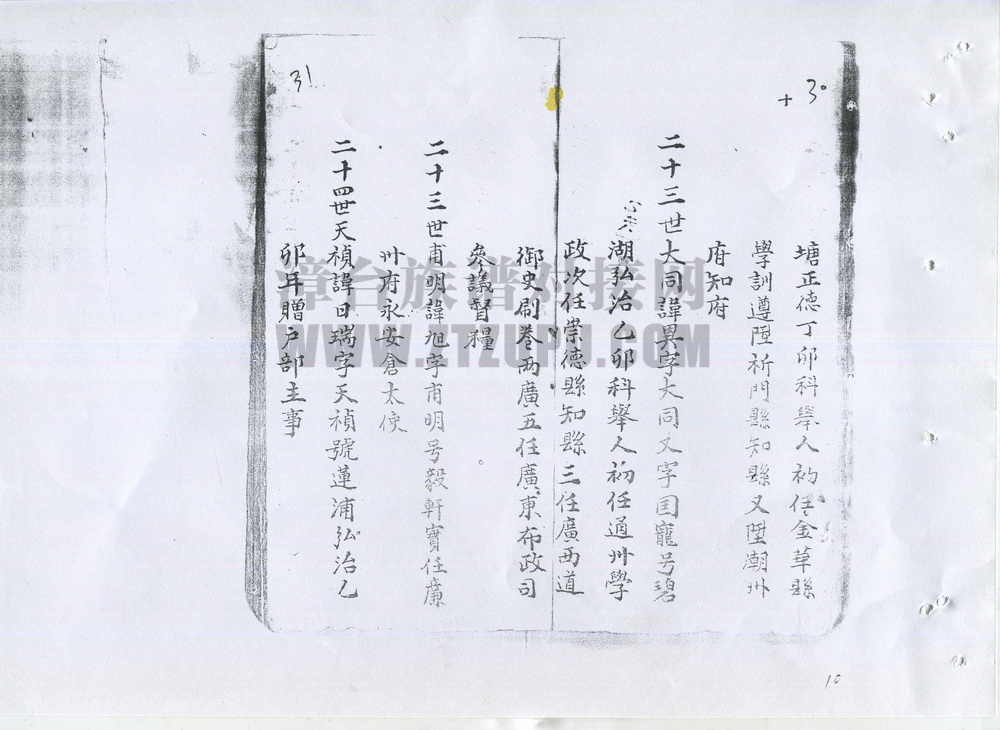 30
+
塘正德丁卯科舉人初任金華縣
學訓遵陞祈門縣知縣又陞潮州
府知府
二十三世大同諱異字大同又字国寵号碧
湖弘治乙卯科舉人初任通州學
政次任崇德縣知縣三任廣西道
御史刷卷两廣五任廣東布政司
叅議督糧
31
二十三世甫明諱旭字甫明号毅軒實任廉
州府永安倉太使
二十四世天禎諱日瑞字天禎號蓮浦弘治乙
卯年贈户部主事
漳台族譜对接网
WWW.ZTZUPU.COM
10